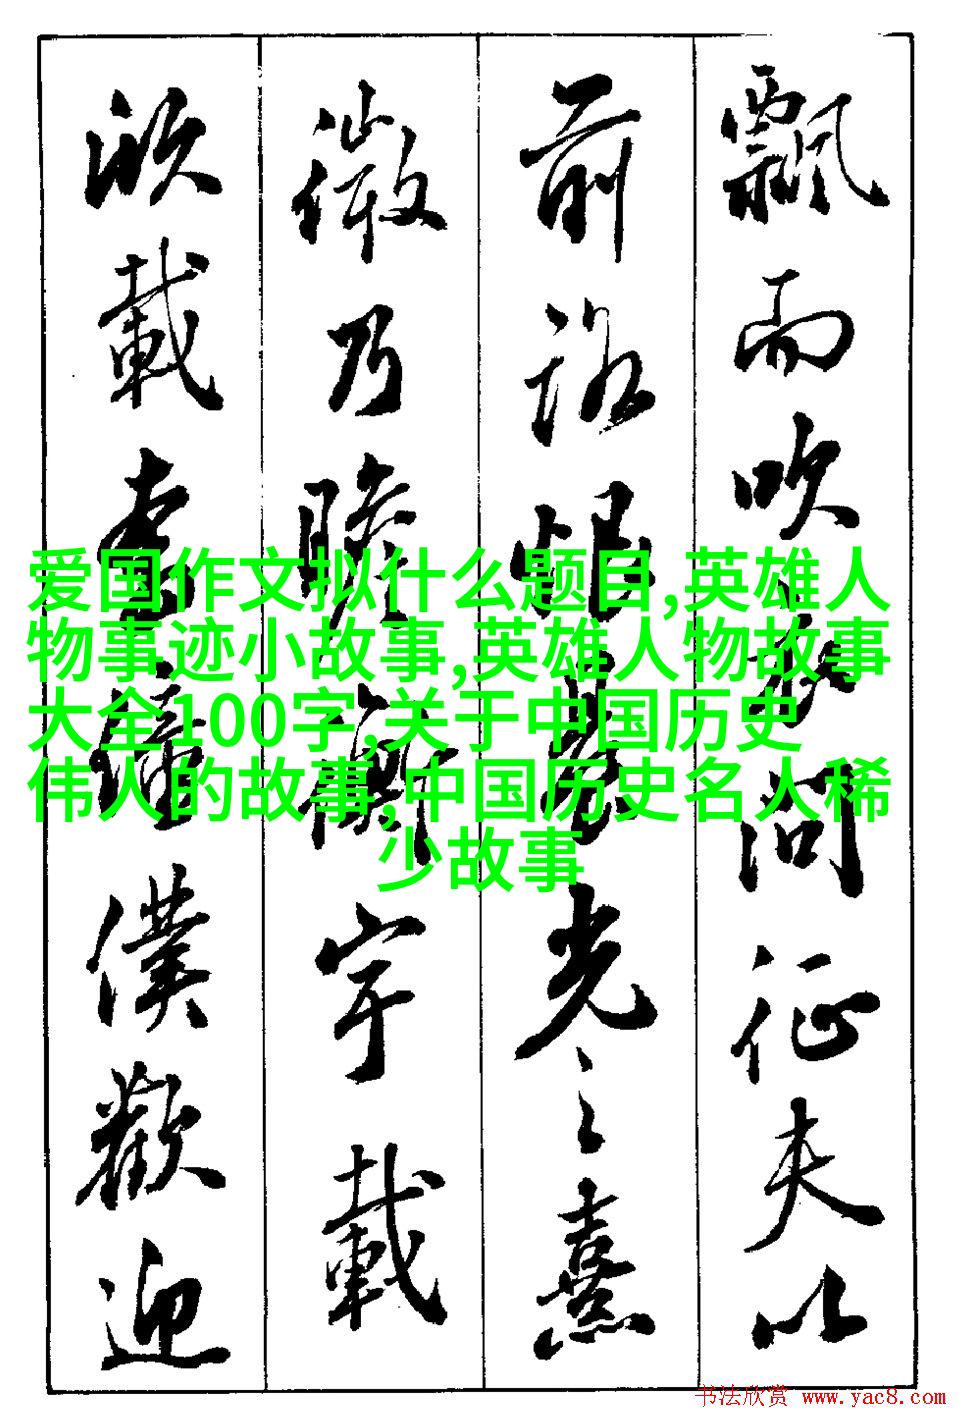 飄而吹衣問征夫以
前路恨晨光之熹
微乃瞻衡宇載
欣載奔僮僕歡迎
爱国作文拟什么题目,英雄人
物事迹小故事,英雄人物故事
大全100字,关于中国历史
伟人的故事,中国历史名人稀
少故事
书法欣赏 www.yac8.com